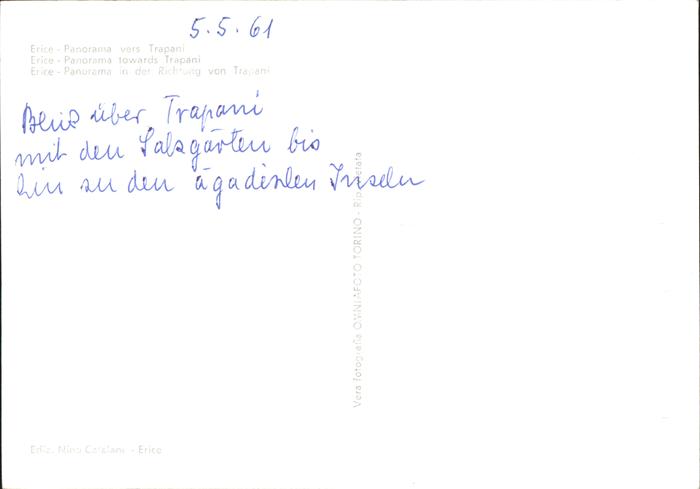 5.5.61
Erice - Panorama vers Trapani
Erice - Panorama towards Trapani
Erice - Panorama in der Richtung von Trapani
Blick über Trapani
mit den Salzgärten bis
hin zu den ägadischen Inseln
Vera fotografia OMNIAFOTO TORINO - Rip. vietata
Ediz. Nino Catalano - Erice